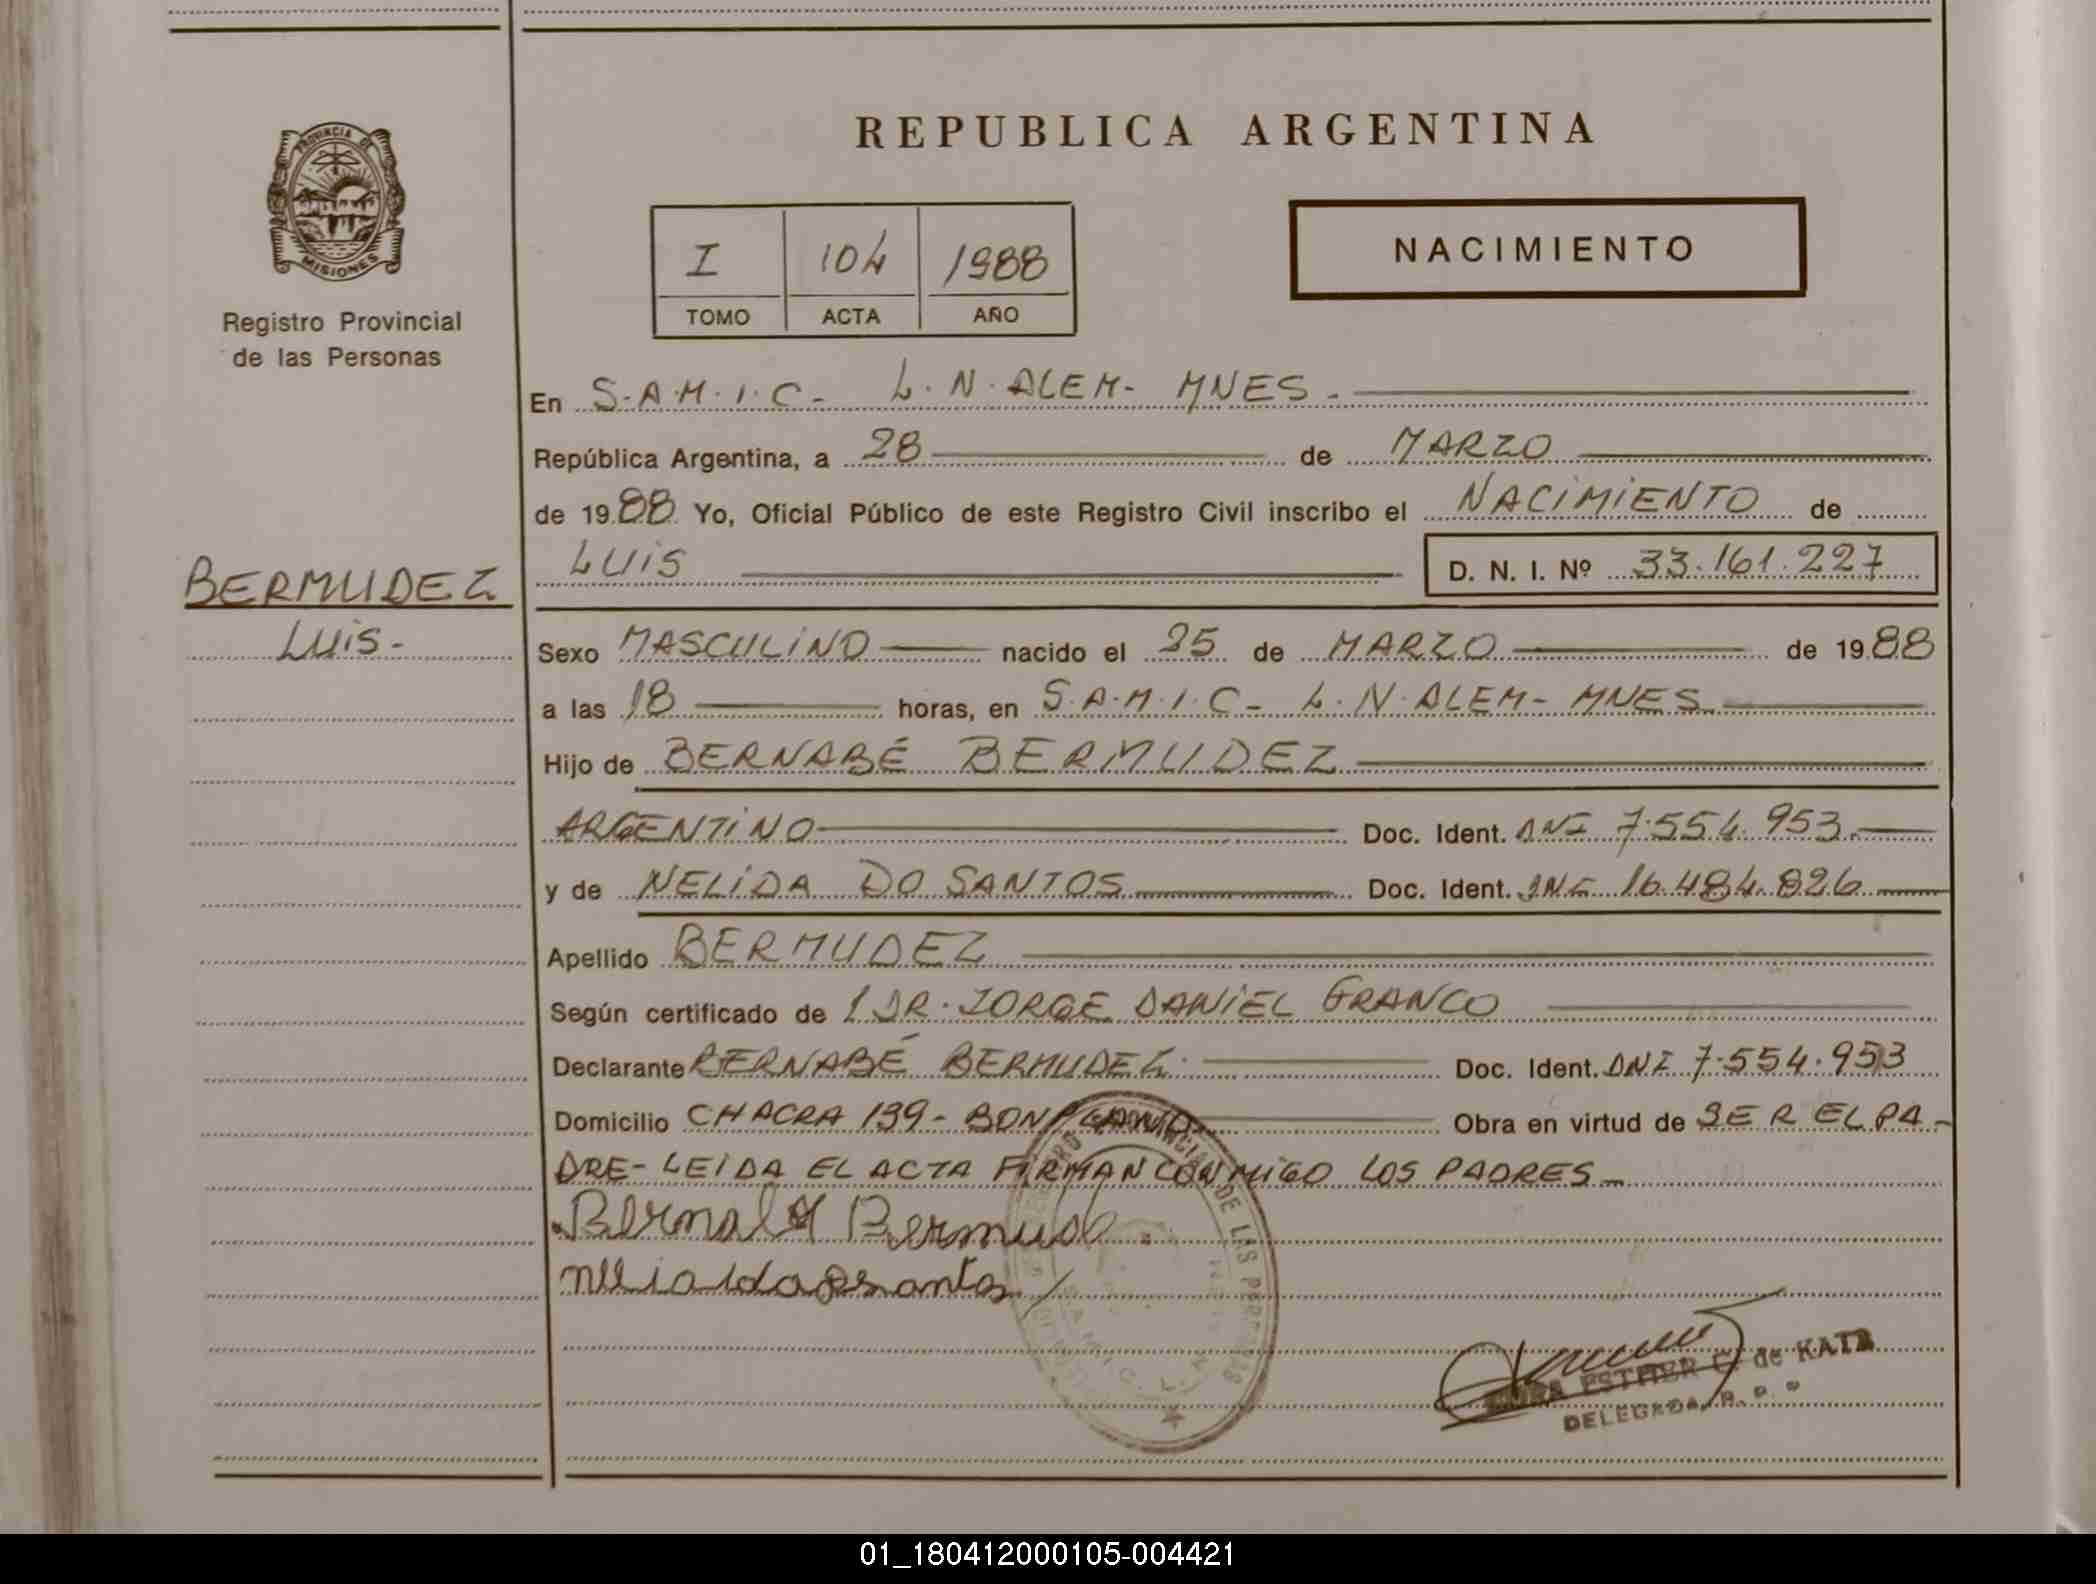 REPUBLICA ARGENTINA
PROVINCIA DE
MISIONES
Registro Provincial
de las Personas
I 104 1988
TOMO ACTA AÑO
NACIMIENTO
En S.A.M.I.C- L.N.ALEM- MNES.
República Argentina, a 28 de MARZO
de 1988 Yo, Oficial Público de este Registro Civil inscribo el NACIMIENTO de
LUIS D. N. I. Nº 33.161.227
BERMUDEZ
LUIS-
Sexo MASCULINO nacido el 25 de MARZO de 1988
a las 18 horas, en S.A.M.I.C- L.N.ALEM- MNES
Hijo de BERNABÉ BERMUDEZ
ARGENTINO Doc. Ident. DNI 7.554.953.
y de NELIDA DO SANTOS Doc. Ident. DNI 16.484.826
Apellido BERMUDEZ
Según certificado de 1 DR. JORGE DANIEL FRANCO
Declarante BERNABÉ BERMUDEZ. Doc. Ident. DNI 7.554.953
Domicilio CHACRA 139- BONPLAND Obra en virtud de SER EL PA-
DRE- LEIDA EL ACTA FIRMAN CONMIGO LOS PADRES-
ESTHER C. de KATZ
DELEGADA
DE LAS PERSONAS
S.A.M.I.C. L.N.
01_180412000105-004421